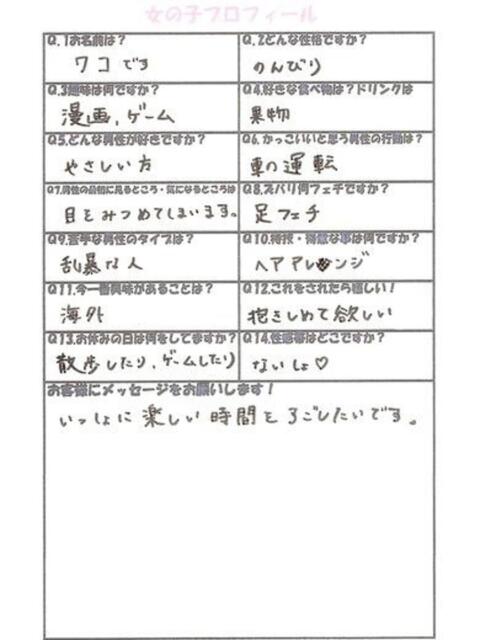 女の子プロフィール
Q.1お名前は?
Q.2どんな性格ですか?
ワコです
のんびり
Q.3趣味は何ですか?
Q.4好きな食べ物は?ドリンクは
漫画、ゲーム
果物
Q5.どんな男性が好きですか?
Q6.かっこいいと思う男性の行動は?
やさしい方
車の運転
Q7.男性の最初に見るところ・気になるところは
Q8.ズバリ何フェチですか?
目をみつめてしまいます。
足フェチ
Q9.苦手な男性のタイプは?
Q10.特技・得意な事は何ですか?
乱暴な人
ヘアアレンジ
Q11.今一番興味があることは?
Q12.これをされたら嬉しい!
海外
抱きしめて欲しい
Q13.お休みの日は何をしてますか?
Q14.性感帯はどこですか?
散歩したり、ゲームしたり
ないしょ♡
お客様にメッセージをお願いします!
いっしょに楽しい時間をすごしたいです。